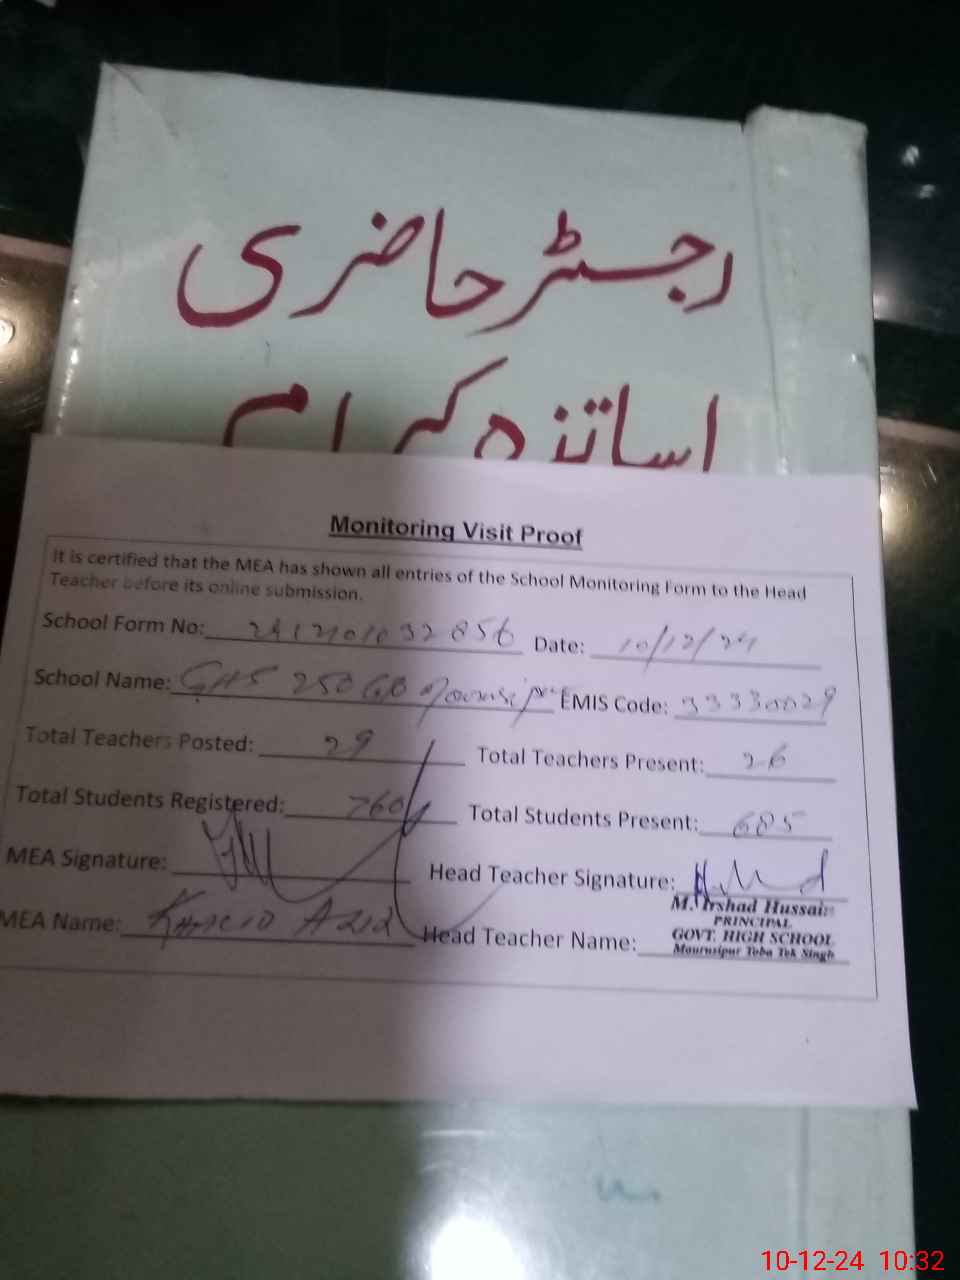 رجسٹر حاضری
اساتذہ کرام
Monitoring Visit Proof
It is certified that the MEA has shown all entries of the School Monitoring Form to the Head
Teacher before its online submission.
School Form No: Date: 10/12/24
School Name: GHS 250 GB EMIS Code: 33330029
Total Teachers Posted: 29 Total Teachers Present: 26
Total Students Registered: 760 Total Students Present: 685
MEA Signature: Head Teacher Signature:
MEA Name: Head Teacher Name:
M. Irshad Hussain
PRINCIPAL
GOVT. HIGH SCHOOL
Mourusipur Toba Tek Singh
10-12-24 10:32